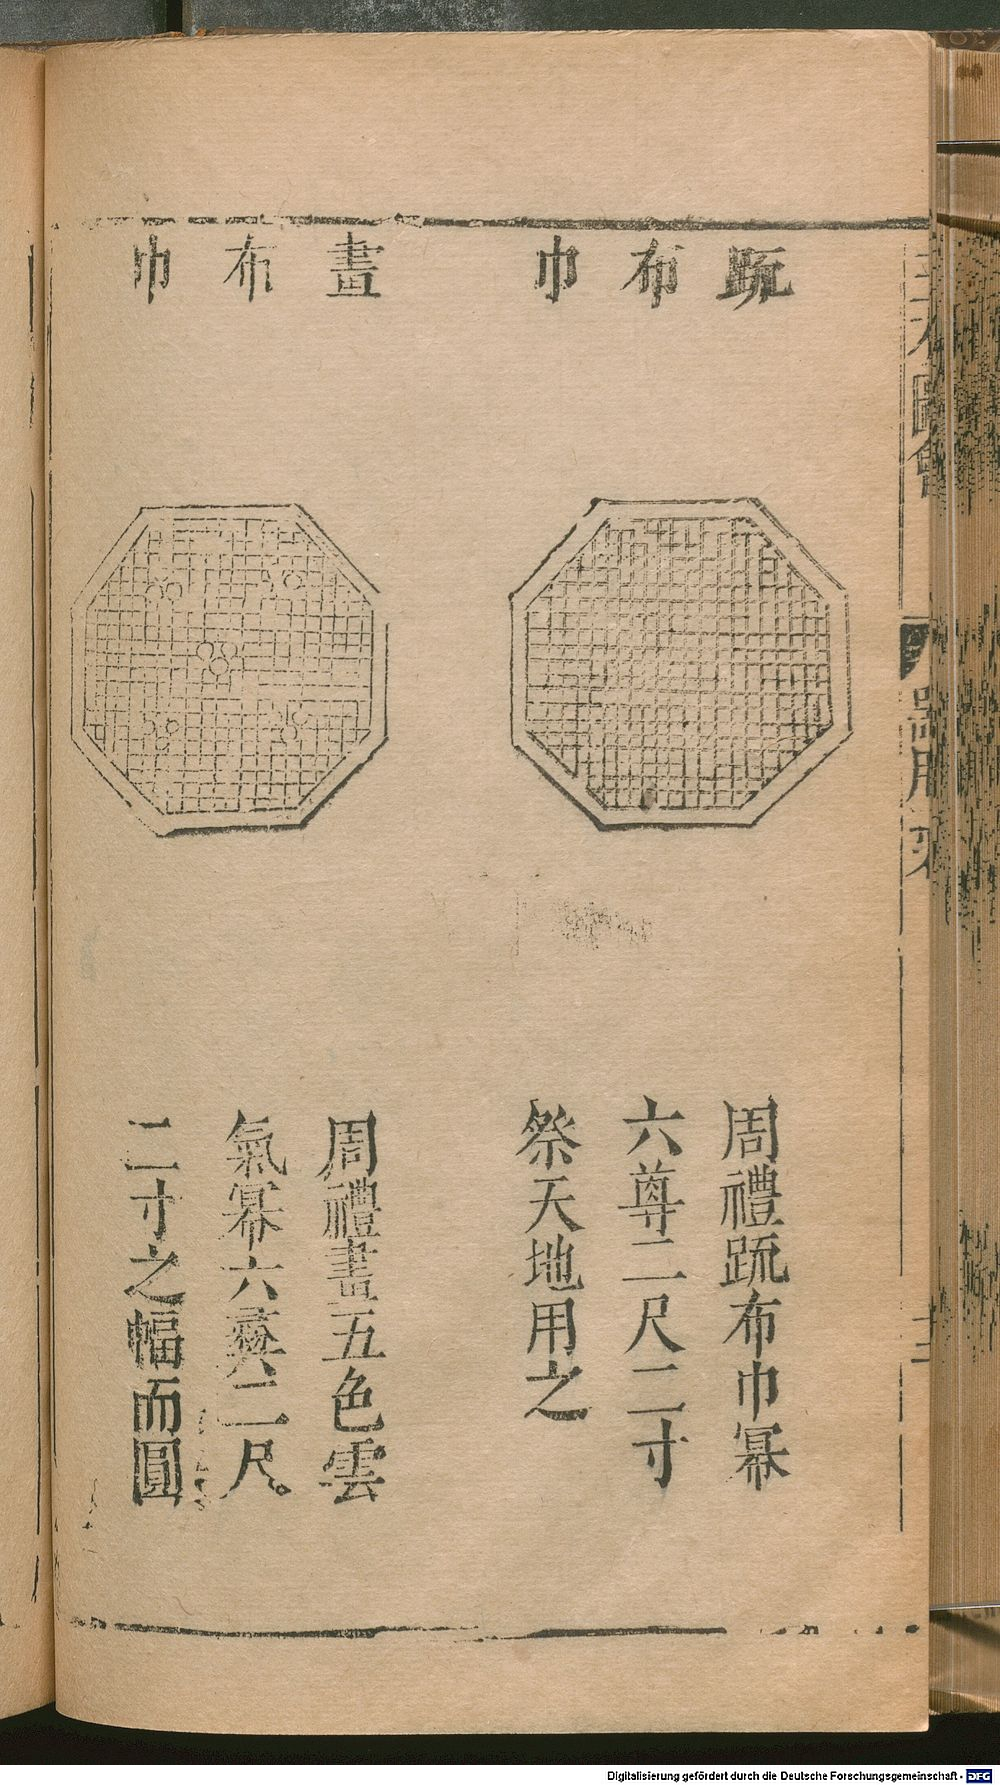 疏布巾
周禮疏布巾冪
六尊二尺二寸
祭天地用之
畫布巾
周禮畫五色雲
氣冪六彝二尺。
二寸之幅而圓
Digitalisierung gefördert durch die Deutsche Forschungsgemeinschaft - DFG